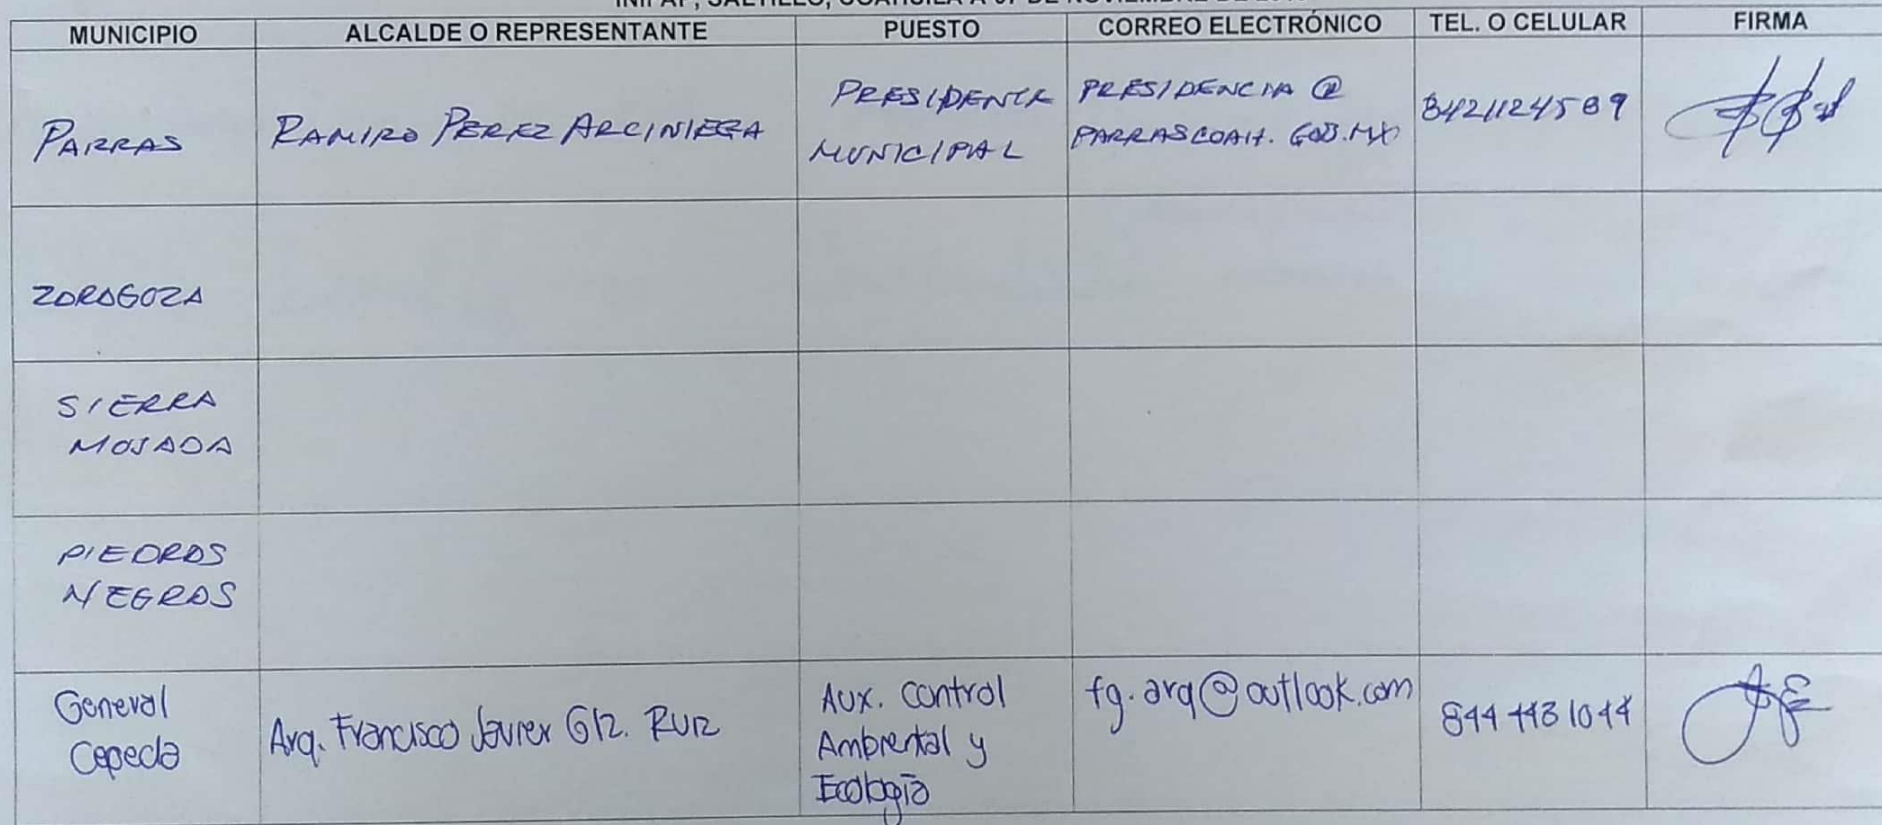 MUNICIPIO ALCALDE O REPRESENTANTE PUESTO CORREO ELECTRÓNICO TEL. O CELULAR FIRMA
PARRAS RAMIRO PEREZ ARCINIEGA PRESIDENTE MUNICIPAL PRESIDENCIA @ PARRASCOAH.GOB.MX 8421124589
ZARAGOZA
SIERRA
MOJADA
PIEDRAS
NEGRAS
General
Cepeda
Arq. Francisco Javier Glz. Ruiz
Aux. Control
Ambiental y
Ecología
fg.arq@outlook.com